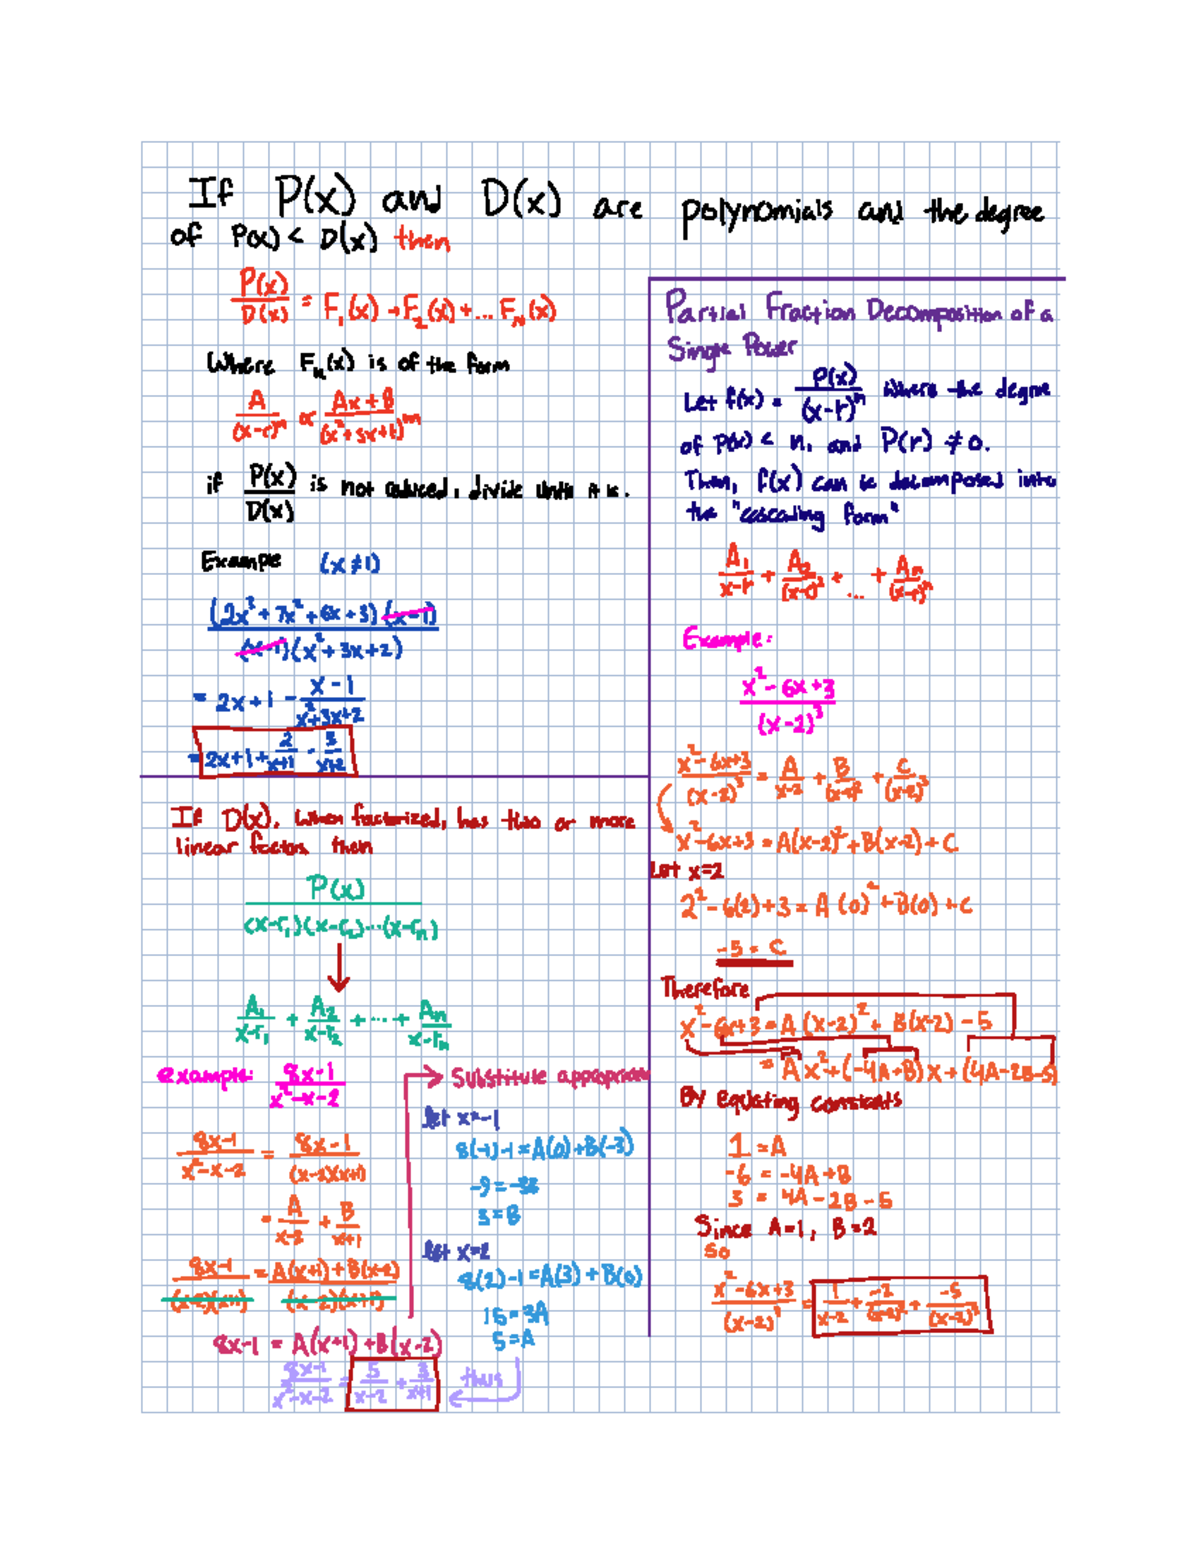 If P(x) and D(x) are polynomials and the degree
of P(x) < D(x) then
P(x)/D(x) = F₁(x) + F₂(x) + ... Fₙ(x)
Where Fₙ(x) is of the form
A/(x-r)ⁿ or (Ax+B)/(x²+sx+t)ᵐ
if P(x)/D(x) is not reduced, divide until it is.
Example (x≠1)
(2x³+7x²+6x+3)(x-1)/(x-1)(x²+3x+2)
= 2x+1 - (x-1)/(x²+3x+2)
= 2x+1+2/(x+1) - 3/(x+2)
If D(x), when factorized, has two or more
linear factors then
P(x)/(x-r₁)(x-r₂)...(x-rₙ)
A₁/(x-r₁) + A₂/(x-r₂) + ... + Aₙ/(x-rₙ)
example: (8x-1)/(x²-x-2)
(8x-1)/(x²-x-2) = (8x-1)/(x-2)(x+1)
= A/(x-2) + B/(x+1)
(8x-1)/(x-2)(x+1) = A(x+1)+B(x-2)/(x-2)(x+1)
8x-1 = A(x+1)+B(x-2)
Substitute appropriate
let x=-1
8(-1)-1=A(0)+B(-3)
-9=-3B
3=B
let x=2
8(2)-1=A(3)+B(0)
15=3A
5=A
thus
(8x-1)/(x²-x-2) = 5/(x-2) + 3/(x+1)
Partial Fraction Decomposition of a
Single Power
Let f(x) = P(x)/(x-r)ⁿ where the degree
of P(x) < n, and P(r) ≠ 0.
Then, f(x) can be decomposed into
the "cascading form"
A₁/(x-r) + A₂/(x-r)² + ... + Aₙ/(x-r)ⁿ
Example:
(x²-6x+3)/(x-2)³
(x²-6x+3)/(x-2)³ = A/(x-2) + B/(x-2)² + C/(x-2)³
x²-6x+3 = A(x-2)²+B(x-2)+C
Let x=2
2²-6(2)+3 = A(0)²+B(0)+C
-5 = C
Therefore
x²-6x+3 = A(x-2)²+B(x-2)-5
= Ax²+(-4A+B)x+(4A-2B-5)
By equating constants
1 = A
-6 = -4A+B
3 = 4A-2B-5
Since A=1, B=2
so
(x²-6x+3)/(x-2)³ = 1/(x-2) + -2/(x-2)² + -5/(x-2)³